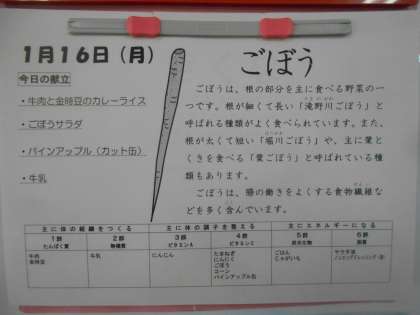 1月16日（月）
今日の献立
・牛肉と金時豆のカレーライス
・ごぼうサラダ
・パインアップル（カット缶）
・牛乳
ごぼう
ごぼうは、根の部分を主に食べる野菜の
一つです。根が細くて長い「滝野川ごぼう」と
呼ばれる種類がよく食べられています。また、
根が太くて短い「堀川ごぼう」や、主に葉と
くきを食べる「葉ごぼう」と呼ばれている種
類もあります。
ごぼうは、腸の働きをよくする食物繊維な
どを多く含んでいます。
主に体の組織をつくる 主に体の調子を整える 主にエネルギーになる
1群 2群 3群 4群 5群 6群
たんぱく質 無機質 ビタミンA ビタミンC 炭水化物 脂質
牛肉 牛乳 にんじん たまねぎ ごはん サラダ油
金時豆 にんにく じゃがいも
ごぼう
コーン
パインアップル缶